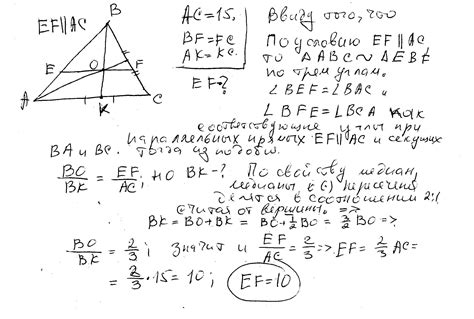 EF∥AC
B
AC=15.
BF=FC
AK=KC.
EF=?
E
O
F
A
K
C
Ввиду того, что
По условию EF∥AC
то ΔABC∼ΔEBF
по трем углам.
∠BEF=∠BAC
∠BFE=∠BCA как
соответствующие углы при
параллельных прямых EF∥AC и секущих
BA и BC. Тогда из подобия.
BO/BK = EF/AC; но BK-? По свойству медиан,
медианы в (·) пересечения
делятся в соотношении 2:1
считая от вершины. =>
BK=BO+BK = BO+1/2 BO = 3/2 BO =>
BO/BK = 2/3; значит и EF/AC = 2/3 => EF= 2/3 AC=
= 2/3 · 15 = 10; EF=10